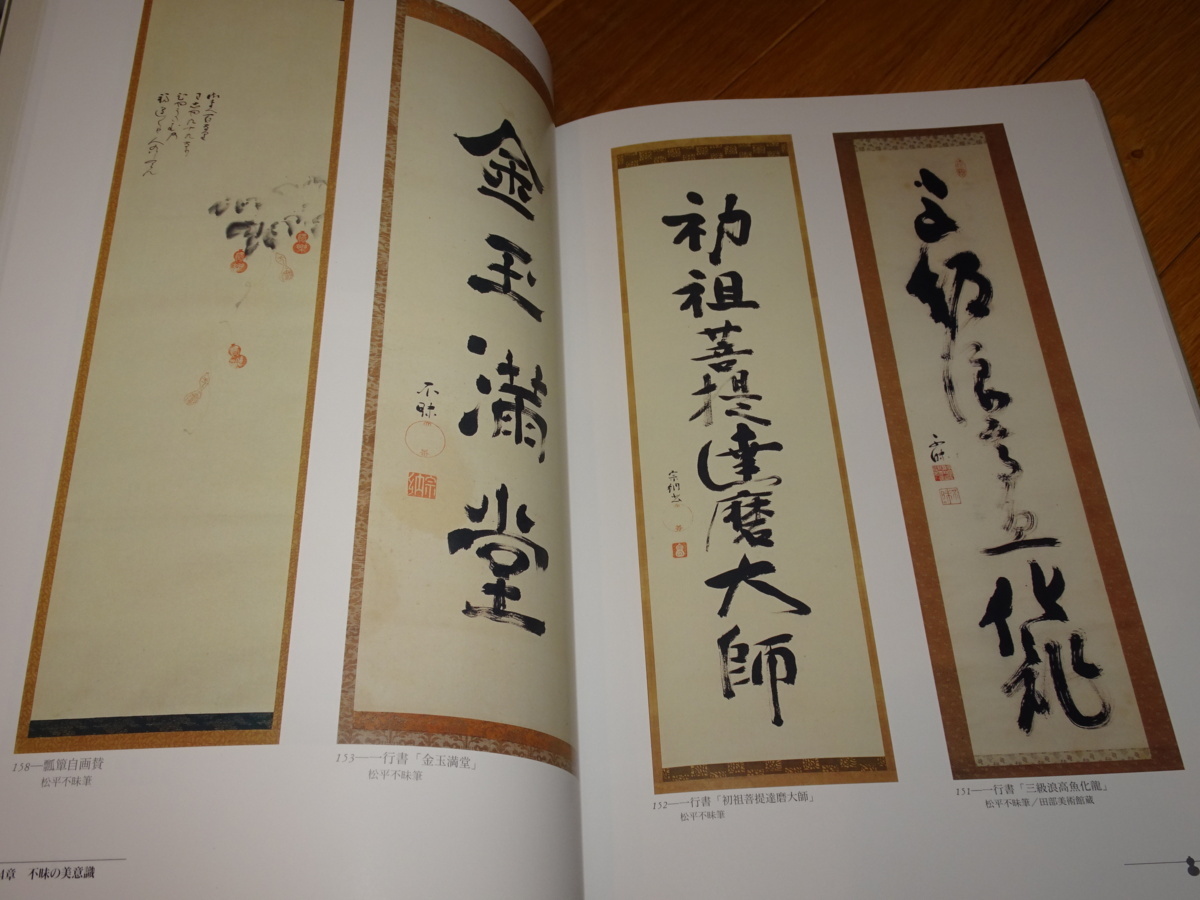 三級浪高魚化龍
不昧
151—一行書「三級浪高魚化龍」
松平不昧筆/田部美術館蔵
初祖菩提達磨大師
152—一行書「初祖菩提達磨大師」
松平不昧筆
金玉満堂
不昧
153—一行書「金玉満堂」
松平不昧筆
158—瓢簞自画賛
松平不昧筆
章 不昧の美意識